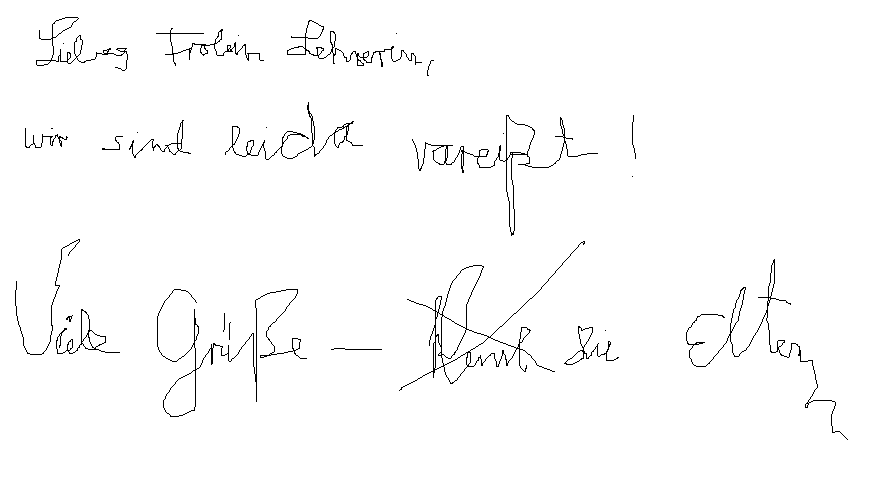 Liebes Frolein Lehrerin,
wir sind leida vareißt!
Viele Grüße – die Eltern